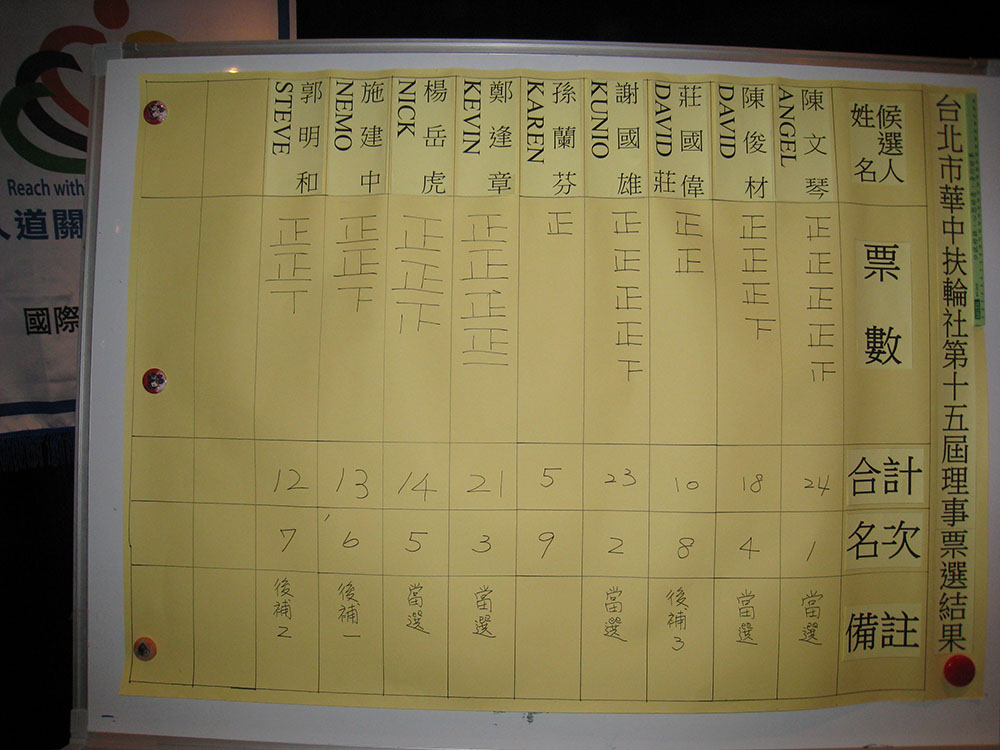 台北市華中扶輪社第十五屆理事票選結果
候選人姓名 票數 合計 名次 備註
陳文琴 ANGEL 正正正正正 24 1 當選
陳俊材 DAVID 正正正下 18 4 當選
莊國偉 DAVID 莊 正正 10 8 後補3
謝國雄 KUNIO 正正正正下 23 2 當選
孫蘭芬 KAREN 正 5 9
鄭逢章 KEVIN 正正正正一 21 3 當選
楊岳虎 NICK 正正 14 5 當選
施建中 NEMO 正正下 13 6 後補一
郭明和 STEVE 正正丅 12 7 後補2
Reach with
人道關
國際